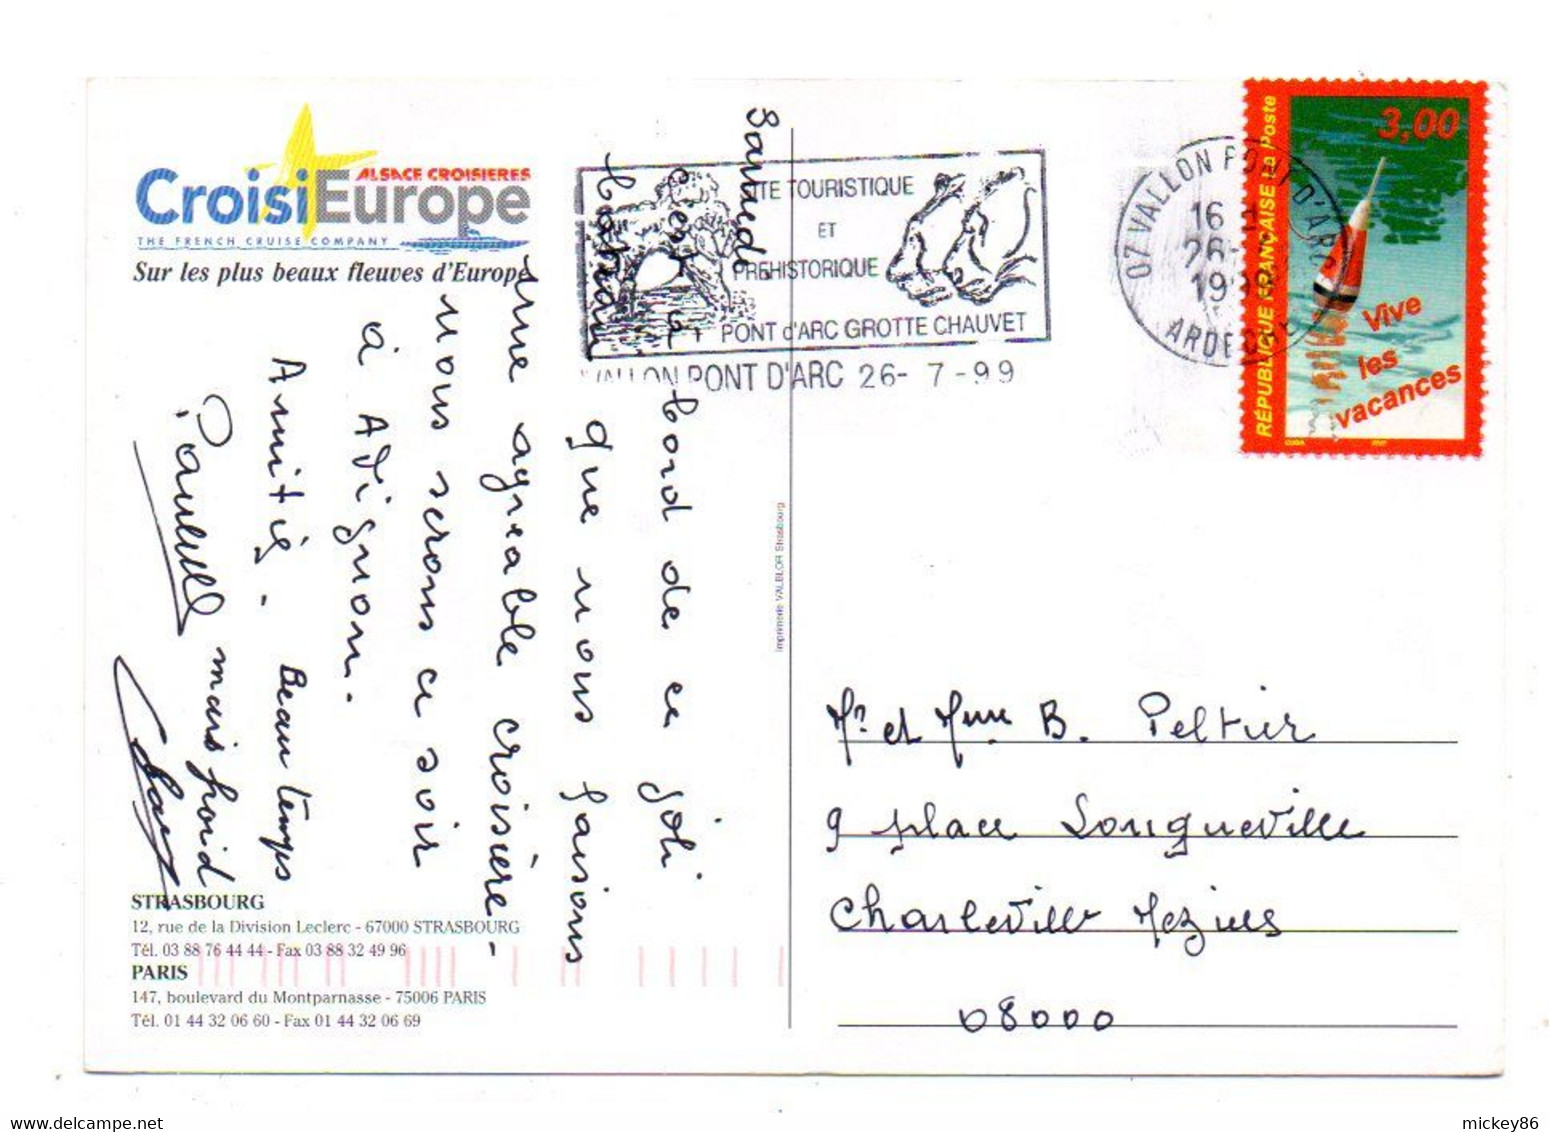 ALSACE CROISIERES
CroisiEurope
THE FRENCH CRUISE COMPANY
Sur les plus beaux fleuves d'Europe
Samedi
C'est à
bord de ce joli
bateau
que nous faisons
une agréable croisière -
nous serons ce soir
à Avignon.
Amitié. Beau temps
mais froid
STRASBOURG
12, rue de la Division Leclerc - 67000 STRASBOURG
Tél. 03 88 76 44 44 - Fax 03 88 32 49 96
PARIS
147, boulevard du Montparnasse - 75006 PARIS
Tél. 01 44 32 06 60 - Fax 01 44 32 06 69
Imprimerie VALBLOR Strasbourg
SITE TOURISTIQUE
ET
PREHISTORIQUE
PONT d'ARC GROTTE CHAUVET
VALLON PONT D'ARC 26-7-99
07 VALLON PONT D'ARC
16 H
26-
1999
ARDECHE
3,00
RÉPUBLIQUE FRANÇAISE La Poste
Vive
les
vacances
Mr et Mme B. Peltier
9 place Longueville
Charleville Mezières
08000
mickey86